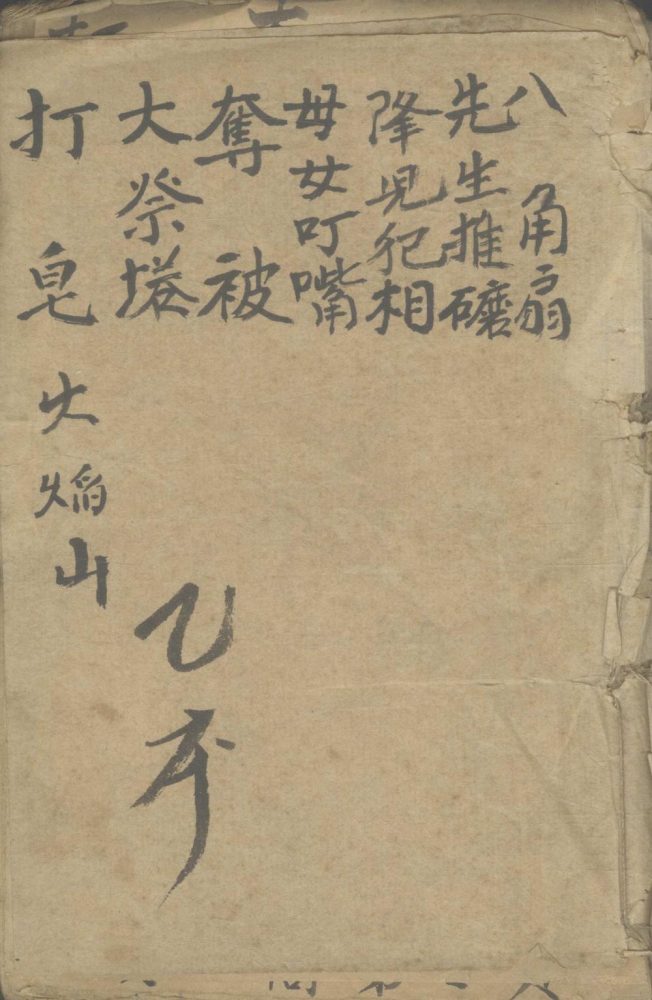 八角扇
先生推磨
降児犯相
母女叮嘴
奪被
大祭塔
打皂
火焰山
乙本